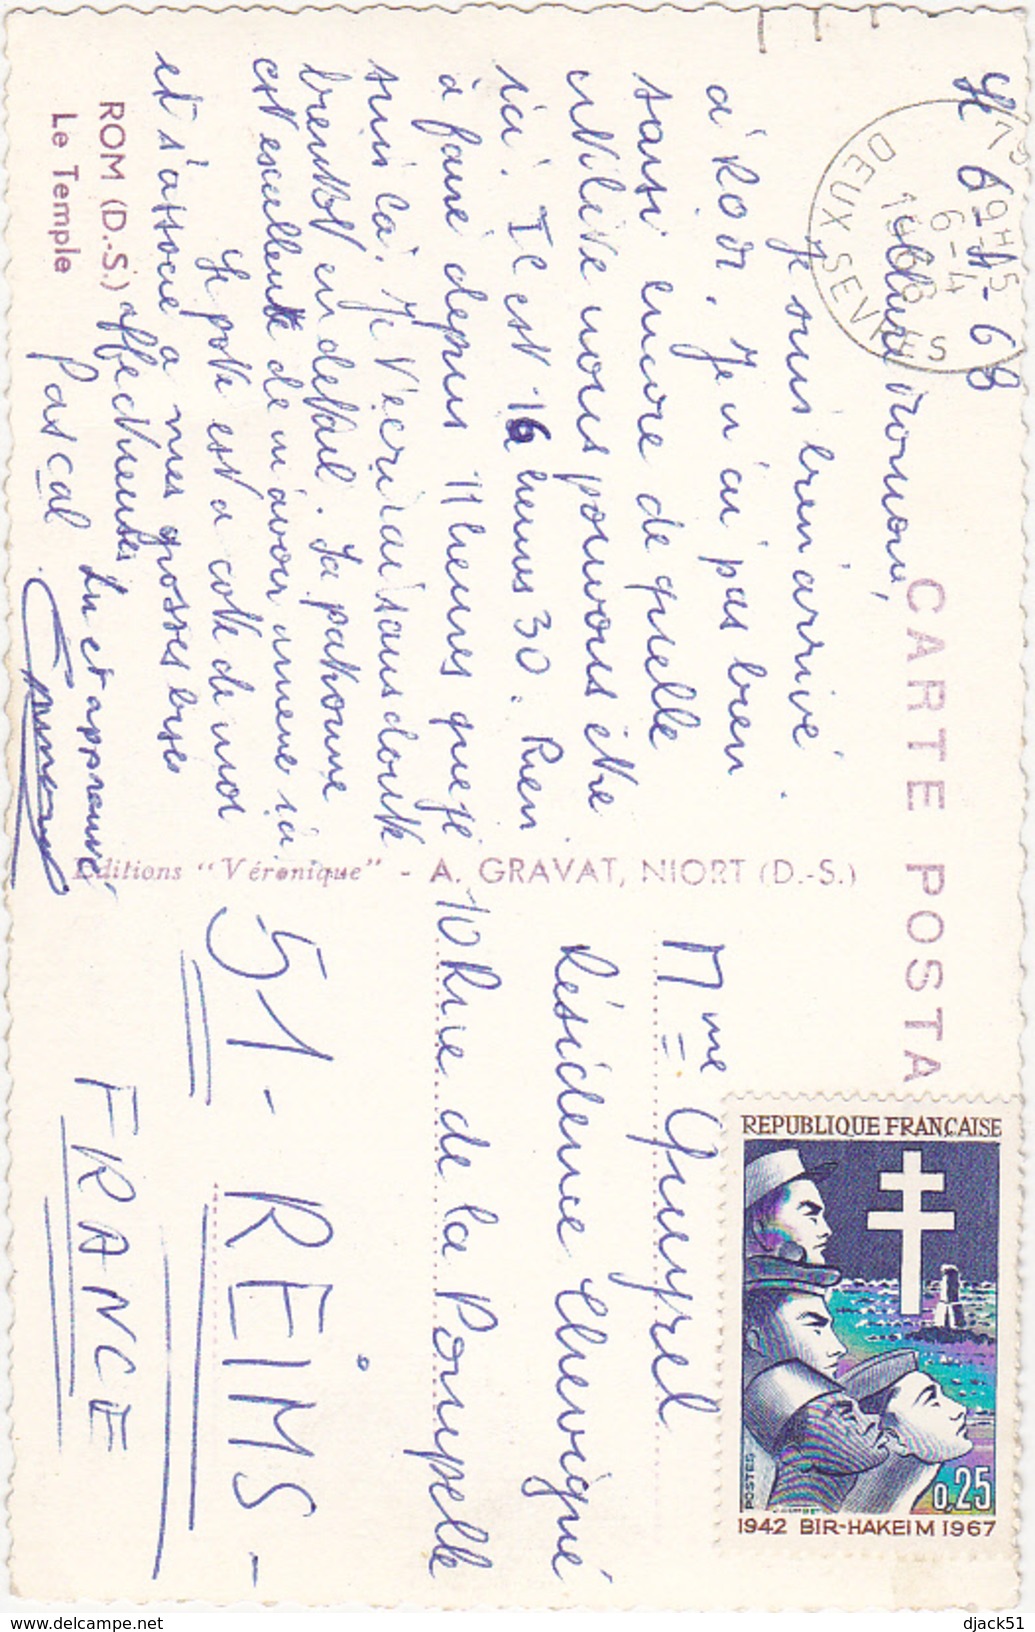 Le 6-4-68
Chère Maman,
je suis bien arrivé
à Rom. Je n'ai pas bien
saisi encore de quelle
utilité nous pouvons être
ici. Il est 16 heures 30. Rien
à faire depuis 11 heures que je
suis là. Je t'écrirai sans doute
bientôt en détail. La patronne
est excellente de m'avoir amené ici
Le pote est a coté de moi
et s'associe a mes grosses bises
affectueuses
Pascal.
Lu et approuvé
ROM (D.-S.)
Le Temple
CARTE POSTA
Editions "Véronique" - A. GRAVAT, NIORT (D.-S.)
79
9H15
6-4
1968
DEUX SEVRES
Mme Queyrel
Résidence Chevigné
10 Rue de la Poupelle
51 - REIMS -
FRANCE
REPUBLIQUE FRANÇAISE
POSTES
0,25
1942 BIR-HAKEIM 1967
delcampe.net
djack51